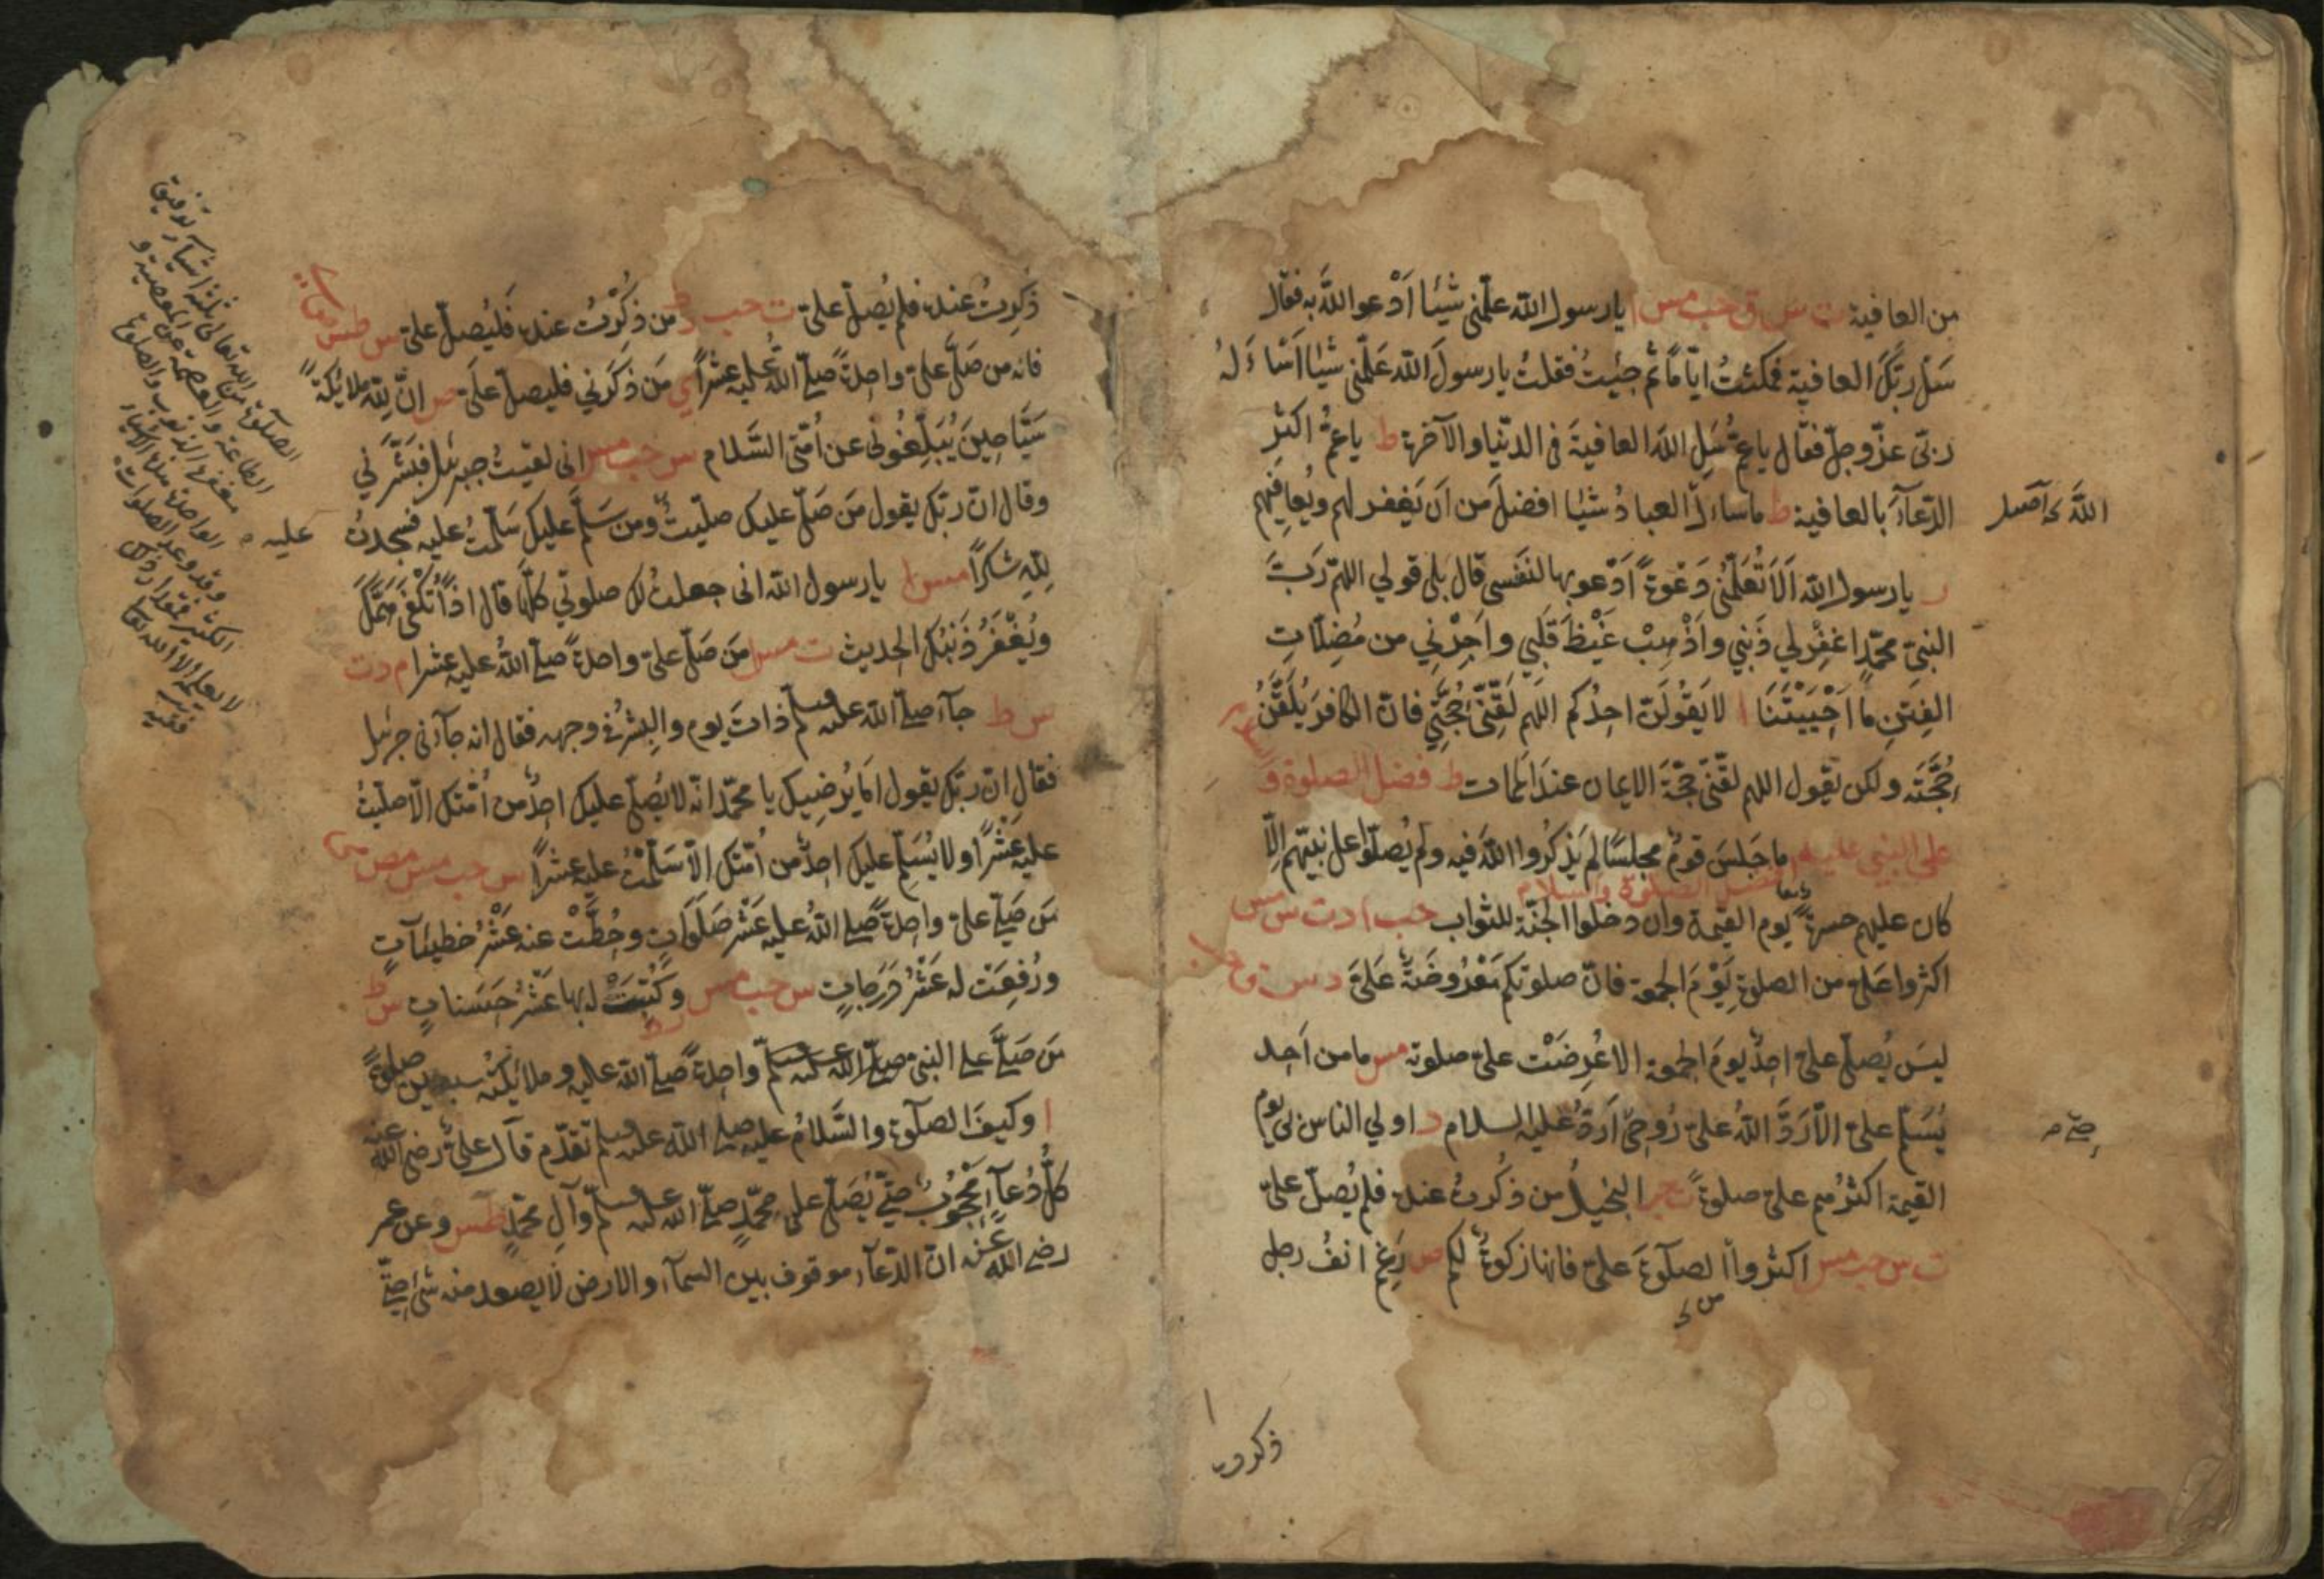 من العافية ت س ق حب مس ا يا رسول الله علّمني شيئا اَدْعو اللّٰه به فقال
سَلْ ربّكَ العافية فمكثتُ ايّامًا ثم جِئيتُ فقلتُ يا رسولَ الله عَلّمني شيئا اَسْاءَلهُ
ربّى عزّ وجلّ فقال يا عمُّ سَلِ اللّٰهَ العافيةَ فى الدنيا والآخرة ط يا عمُّ اكثِرِ
الدّعآءَ بالعافية ط ما ساءلَ العبادُ شيئا افضلَ من اَن يَغفر لهم ويُعافيَهم
ر يا رسول اللّٰه اَلَا تُعلّمُنى دَعْوةً اَدْعو بها لنَفسى قال بلى قولي اللهمّ رَبَّ
النبىّ محمّدٍ اغفِرْ لي ذَنبي واَذْهِبْ غَيْظَ قَلبي واَجِرْنِي من مُضِلّاتِ
الفِتَنِ ما اَحْيَيْتَنَا ا لا يَقُولَنّ احدُكم اللهم لَقِّنّى حُجَّتِي فانّ الكافرَ يُلَقَّنُ
حُجَّتَه ولكن يَقول اللهم لقّنّى حجّةَ الايمان عند المَمات ط فضل الصلوة و
على النبي عليه ما جَلسَ قومٌ مجلسًا لم يَذكُروا اللّٰهَ فيه ولم يُصلّوا على نبيّهم اِلّا
افضل الصلوة والسلام
كان عليهم حسرةً يوم القيمة وان دخلوا الجنّة للثواب حب ا د ت س مس
اكثروا عَلىّ من الصلوةِ يَوْمَ الجمعة فانّ صلوتكم مَعْرُوضَةٌ عَلىَّ د س ق حب
ليسَ يُصلّى علىّ احدٌ يومَ الجمعة الا عُرِضَتْ علىّ صلوته مس ما من اَحد
يُسَلّم علىّ الّا رَدَّ اللّٰهُ علىّ رُوحي حتى اَردّ عليه السلام د اولي الناس بى يوم
القيمة اكثرُهم علىّ صلوةً ت حب البخيلُ من ذُكرتُ عنده فلم يُصلّ علىّ
ت س حب مس اكثروا الصلوٰةَ علىّ فانها زكوةٌ لكم ص رَغِمَ انفُ رجل
من
ذكرت
ذُكِرتُ عنده فلم يُصلّ علىّ ت حب ر ط من ذُكِرْتُ عنده فَليُصلّ علىّ س طس
فانه من صَلّى علىّ واحدةً صلّى اللّٰه عليه عشراً ي مَن ذكَرَني فليصلّ علىّ ص انّ للّٰه ملائكةً
سَيّاحِينَ يُبَلِّغُونى عن اُمّتى السَّلام س حب مس انى لقيتُ جبرئيل فبشّرَني
وقال انّ ربّك يقول مَن صَلّى عليك صلّيتُ ومن سَلّم عليك سَلّمتُ عليه فسجدتُ
عليه
للّٰهِ شكراً مس ا يا رسول الله انى جعلتُ لك صلوتي كلَّها قال اذًا تُكْفٰى هَمَّكَ
ويُغْفَرُ ذَنبُك الحديث ت مس مَن صَلّى علىّ واحدةً صلّى اللّٰهُ عليه عشرا م د ت
س ط جآء صلى اللّٰه عليه وسلم ذاتَ يوم والبِشرُ في وجهه فقال انه جآءنى جبرئيل
فقال انّ ربّك يقول اَما يُرضيك يا محمّد انّه لا يُصلّي عليك احدٌ من اُمّتك الّا صلّيتُ
عليه عشْرًا ولا يُسَلّم عليك احدٌ من اُمّتك الّا سَلّمْتُ عليه عشراً س حب مس مص مى
مَن صَلّى علىّ واحدةً صلى اللّٰهُ عليه عَشْرَ صَلَوَاتٍ وحُطَّتْ عنه عَشْرُ خطيئآتٍ
ورُفِعَتْ له عَشْرُ دَرَجاتٍ س حب مس ر ط وكُتِبَتْ له بها عَشْرُ حَسَناتٍ س ط
مَن صَلَّى على النبىّ صلى اللّٰه عليه وسلم واحدةً صلّى اللّٰه عليه وملائكتُه سبعين صلوةً
ا وكيفَ الصلٰوة والسَّلامُ عليه صلى اللّٰه عليه وسلم تقدّم قال علىّ رضى اللّٰه عنه
كلُّ دُعآءٍ مَحْجُوبٌ حتّى يُصَلّى على محمّدٍ صلّى اللّٰه عليه وسلّم وآلِ محمّدٍ طس وعن عمر
رضى اللّٰه عنه انّ الدّعآء موقوف بين السمآء والارض لا يصعد منه شئ حتّى